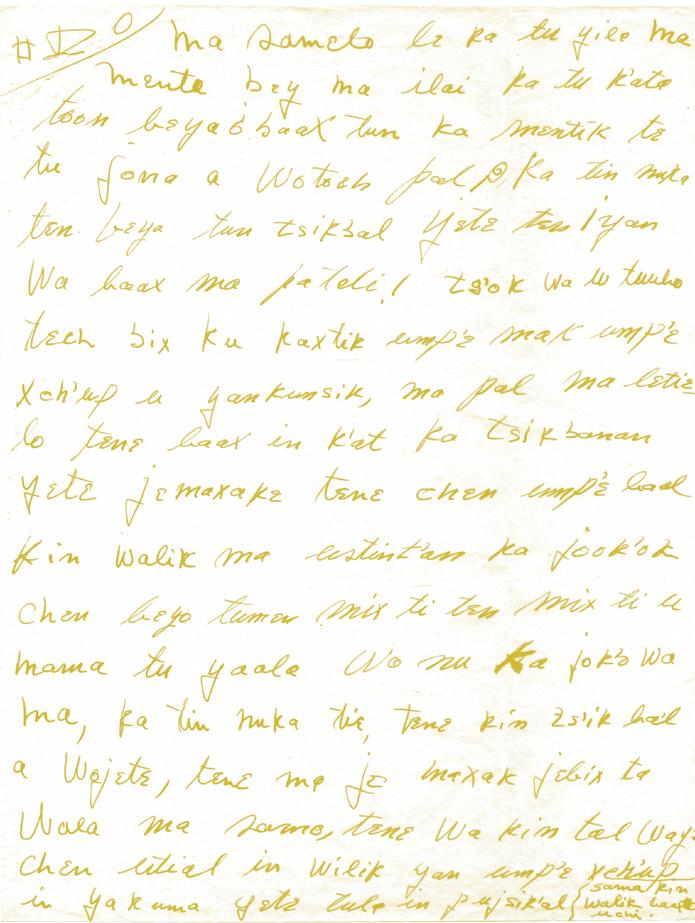 ma sameto le ka tu yile ma
menta bey ma ilai ka tu k'ata
toon beya ó baax tun ka mentik te
tu jona a Wotoch pal ka tin nuka
ten beya tun tsikbal yete ten yan
Wa baax ma patali! ts'ok wa w tuubo
tech bix ku kaxtik ump'e mak ump'e
xch'up u yankunsik, ma pal ma letie
lo tene baax in k'at ka tsikbanan
yete jemaxake tene chen ump'e baal
kin walik ma ustint'an ka jook'ok
chen beyo tumen mix ti ten mix ti u
mama tu yaala Wo nu ka jok'o wa
ma, ka tin nuka tie, tene kin ts'ik bal
a Wojete, tene ma je maxak jebix ta
Waala ma samo, tene wa kin tal way
chen utial in wilik yan ump'e xch'up
in yakuma yete tule in pujsik'al
sama kin
walik baax